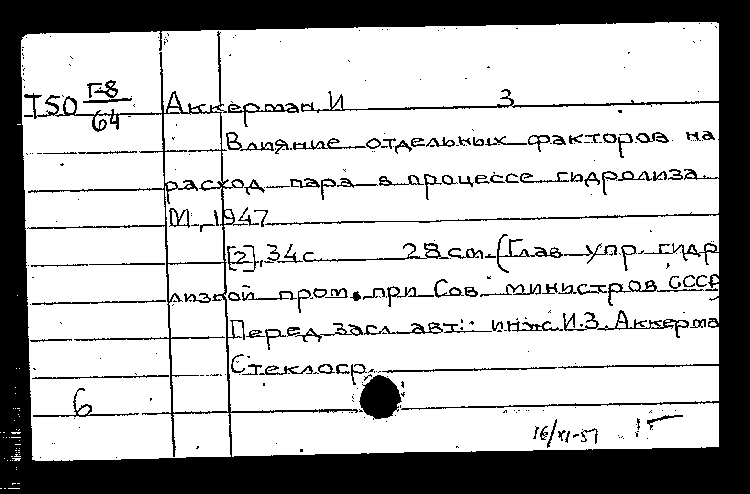 I50 Г-8/64 Аккерман, И З
Влияние отдельных факторов на
расход пара в процессе гидролиза.
М., 1947
[2], 34 с 28 см. (Глав. упр. гидр
лизной пром. при Сов. министров СССР
Перед загл. авт.: инж И.З. Аккерма
Стеклогр.
6
16/XI-57